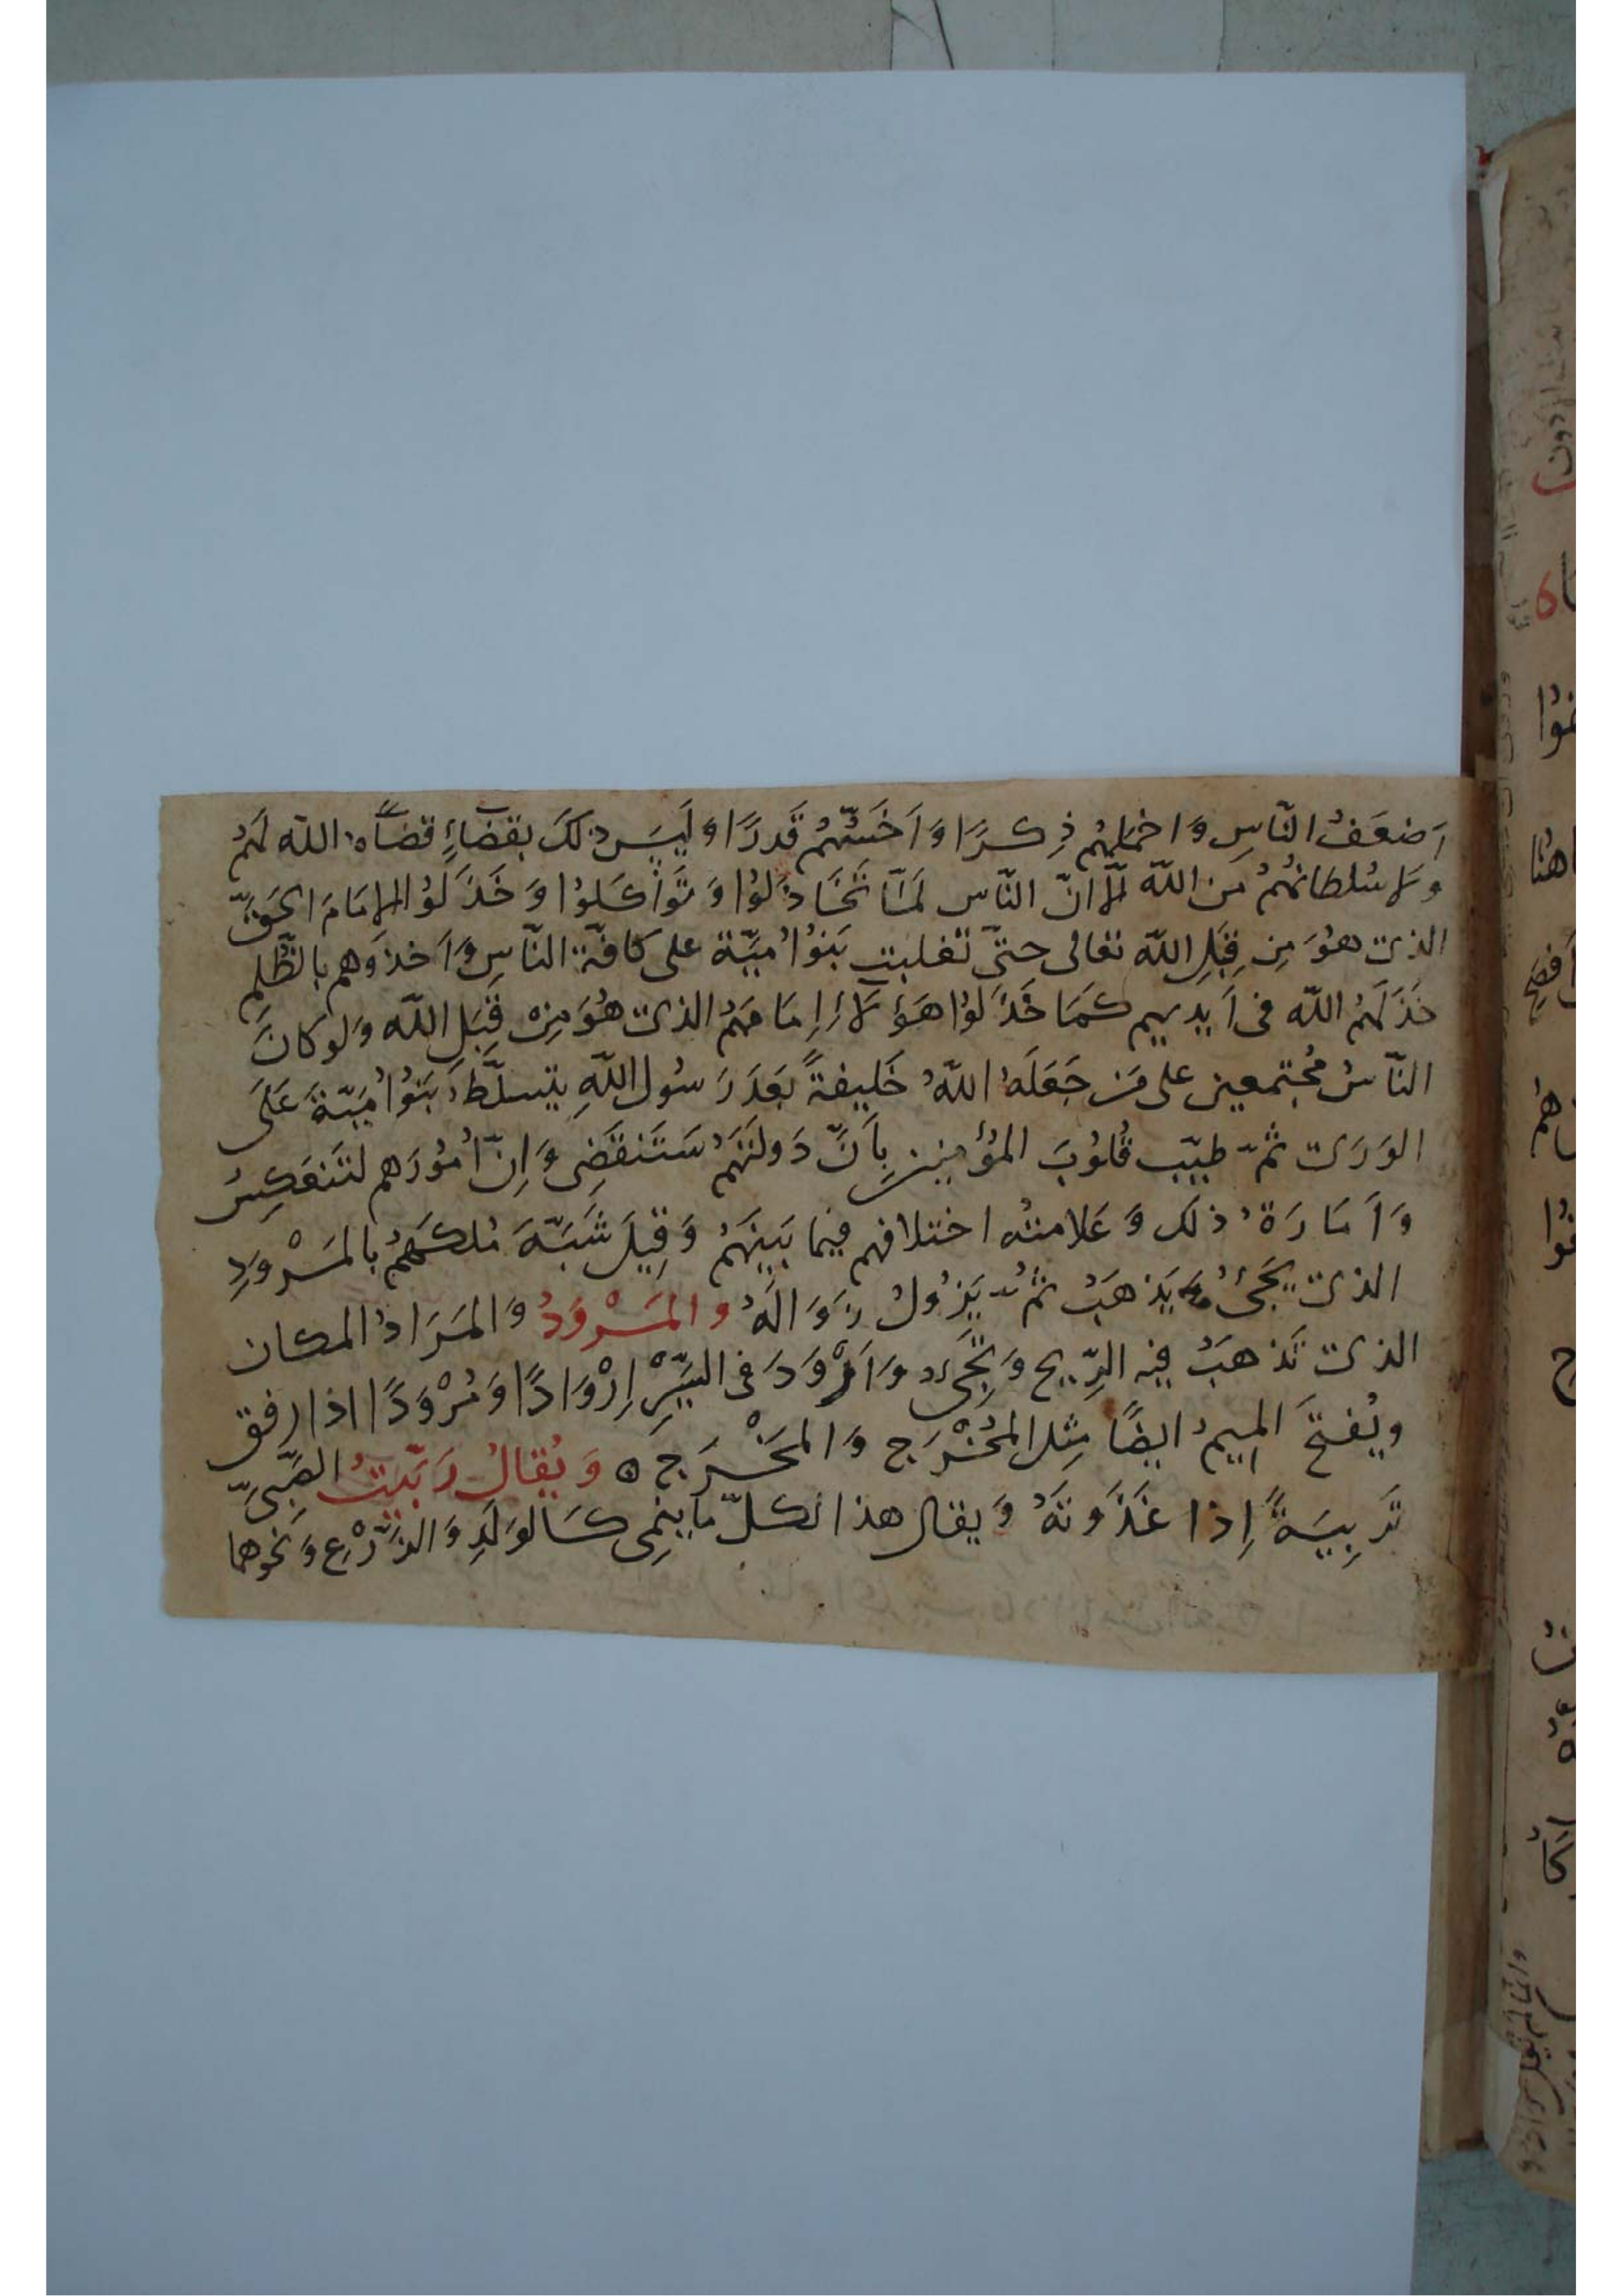 اَضعَفُ النّاسِ وَاخمَلهُم ذِكرًا وَاَخَسّهُم قَدرًا وَلَيسَ ذلكَ بقضَاءٍ قضَاهُ الله لَهُم
وَلا سُلطانهُم من الله لّا انّ النّاس لمّا تَخَاذَلُوا وَتَوَاكَلوُا وَخَذَلوُا الاِمَامَ الحَقّ
الذى هُوَ مِن قِبَلِ الله تعالى حتّى تغلبت بَنوُا اُميّة على كافّة النّاسِ وَاَخذوَهم بالظّلمِ
خَذَلَهُم الله فى اَيديهم كمَا خَذَلوُا هَؤلاءِ اِمَامَهُم الذى هُوَ مِنْ قِبَلِ الله وَلو كانَ
النّاسُ مُجتمعين على مَن جَعَلَهُ اللهُ خَليفةً بَعدَ رَسُولِ اللهِ يتسلّطُ بَنوُا اُميّةَ عَلَى
الوَرَى ثمّ طيّب قُلوُبَ المؤمنِين بِاَنّ دَولتَهُم سَتَنقَضِى وَاِنّ اُموُرَهم لتَنعَكِسُ
وَاَمَارَةُ ذلك وَعَلامتُه اختلافهم فيما بَينَهُم وَقِيلَ شَبّهَ مُلكَهُم بالمَرْوَدِ
الذى يَجَىُ وَيَذهَبُ ثمُّ يَزوُلُ زَوَالَهُ والمَرْوَدُ وَالمَرَادُ المكان
الذى تَذهَبُ فيه الرّيح وَتجَىُ وَاَرْوَدَ فى السّيرِ اِرْوَادًا وَمُرْوَدًا اذا رفق
ويُفتحَ الميمُ ايضًا مِثل المُخْرَج وَالمَخْرَج ه وَيُقالُ رَبّيتُ الصّبىّ
تَربِيَةً اِذا غَذَوتَهُ وَيقال هذا لكلّ ما ينمِى كَالوَلَدِ وَالزَّرْعِ وَنحوها